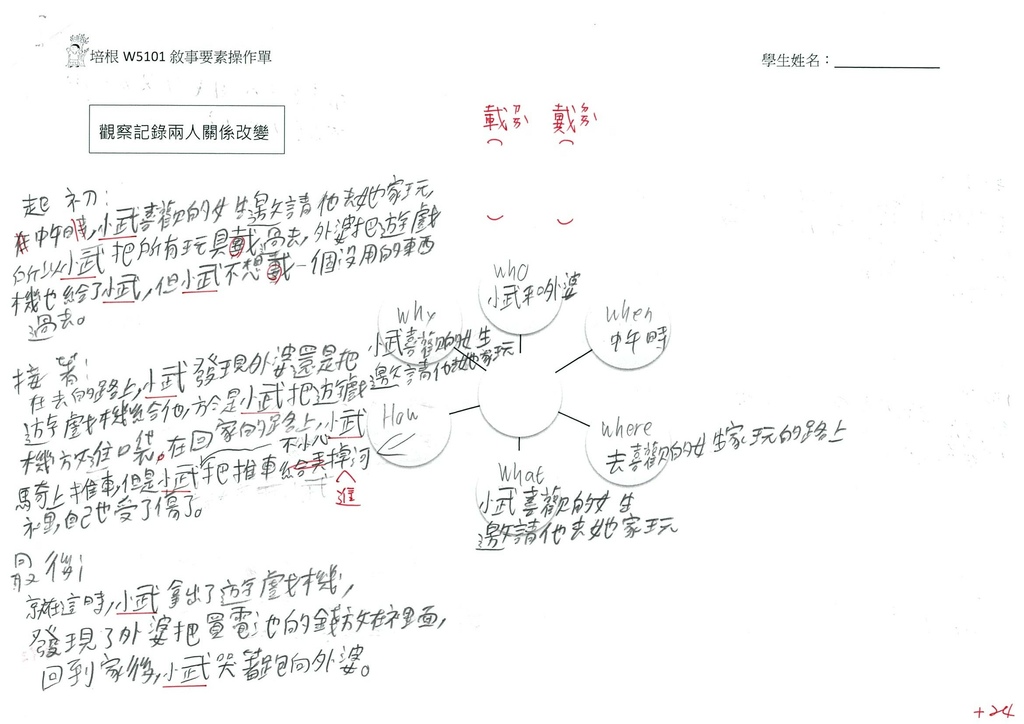 培根 W5101 敘事要素操作單
學生姓名：
觀察記錄兩人關係改變
載ㄗㄞˋ 戴ㄉㄞˋ
起初：
在中午時,小武喜歡的女生邀請他去她家玩,
所以小武把所有玩具載過去,外婆把遊戲
機也給了小武,但小武不想載一個沒用的東西
過去。
接著：
在去的路上,小武發現外婆還是把
遊戲機給他,於是小武把遊戲
機放進口袋,在回家的路上,小武
騎上推車,但是小武把推車不小心掉進河
裡,自己也受了傷了。
最後：
就在這時,小武拿出了遊戲機,
發現了外婆把買電池的錢放在裡面,
回到家後,小武哭著跑向外婆。
who
小武和外婆
when
中午時
where
去喜歡的女生家玩的路上
what
小武喜歡的女生
邀請他去她家玩
How
why
小武喜歡的女生
邀請他去她家玩
+24